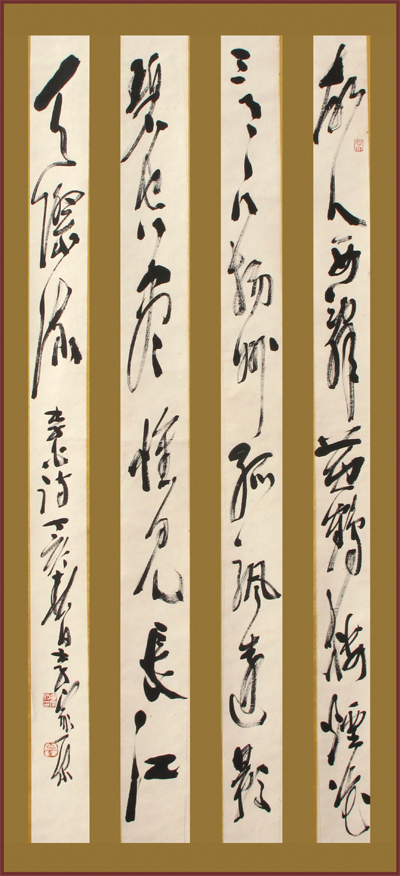 故人西辭黃鶴樓煙花
三月下揚州孤帆遠影
碧空盡惟見長江
天際流 李白詩丁亥春日